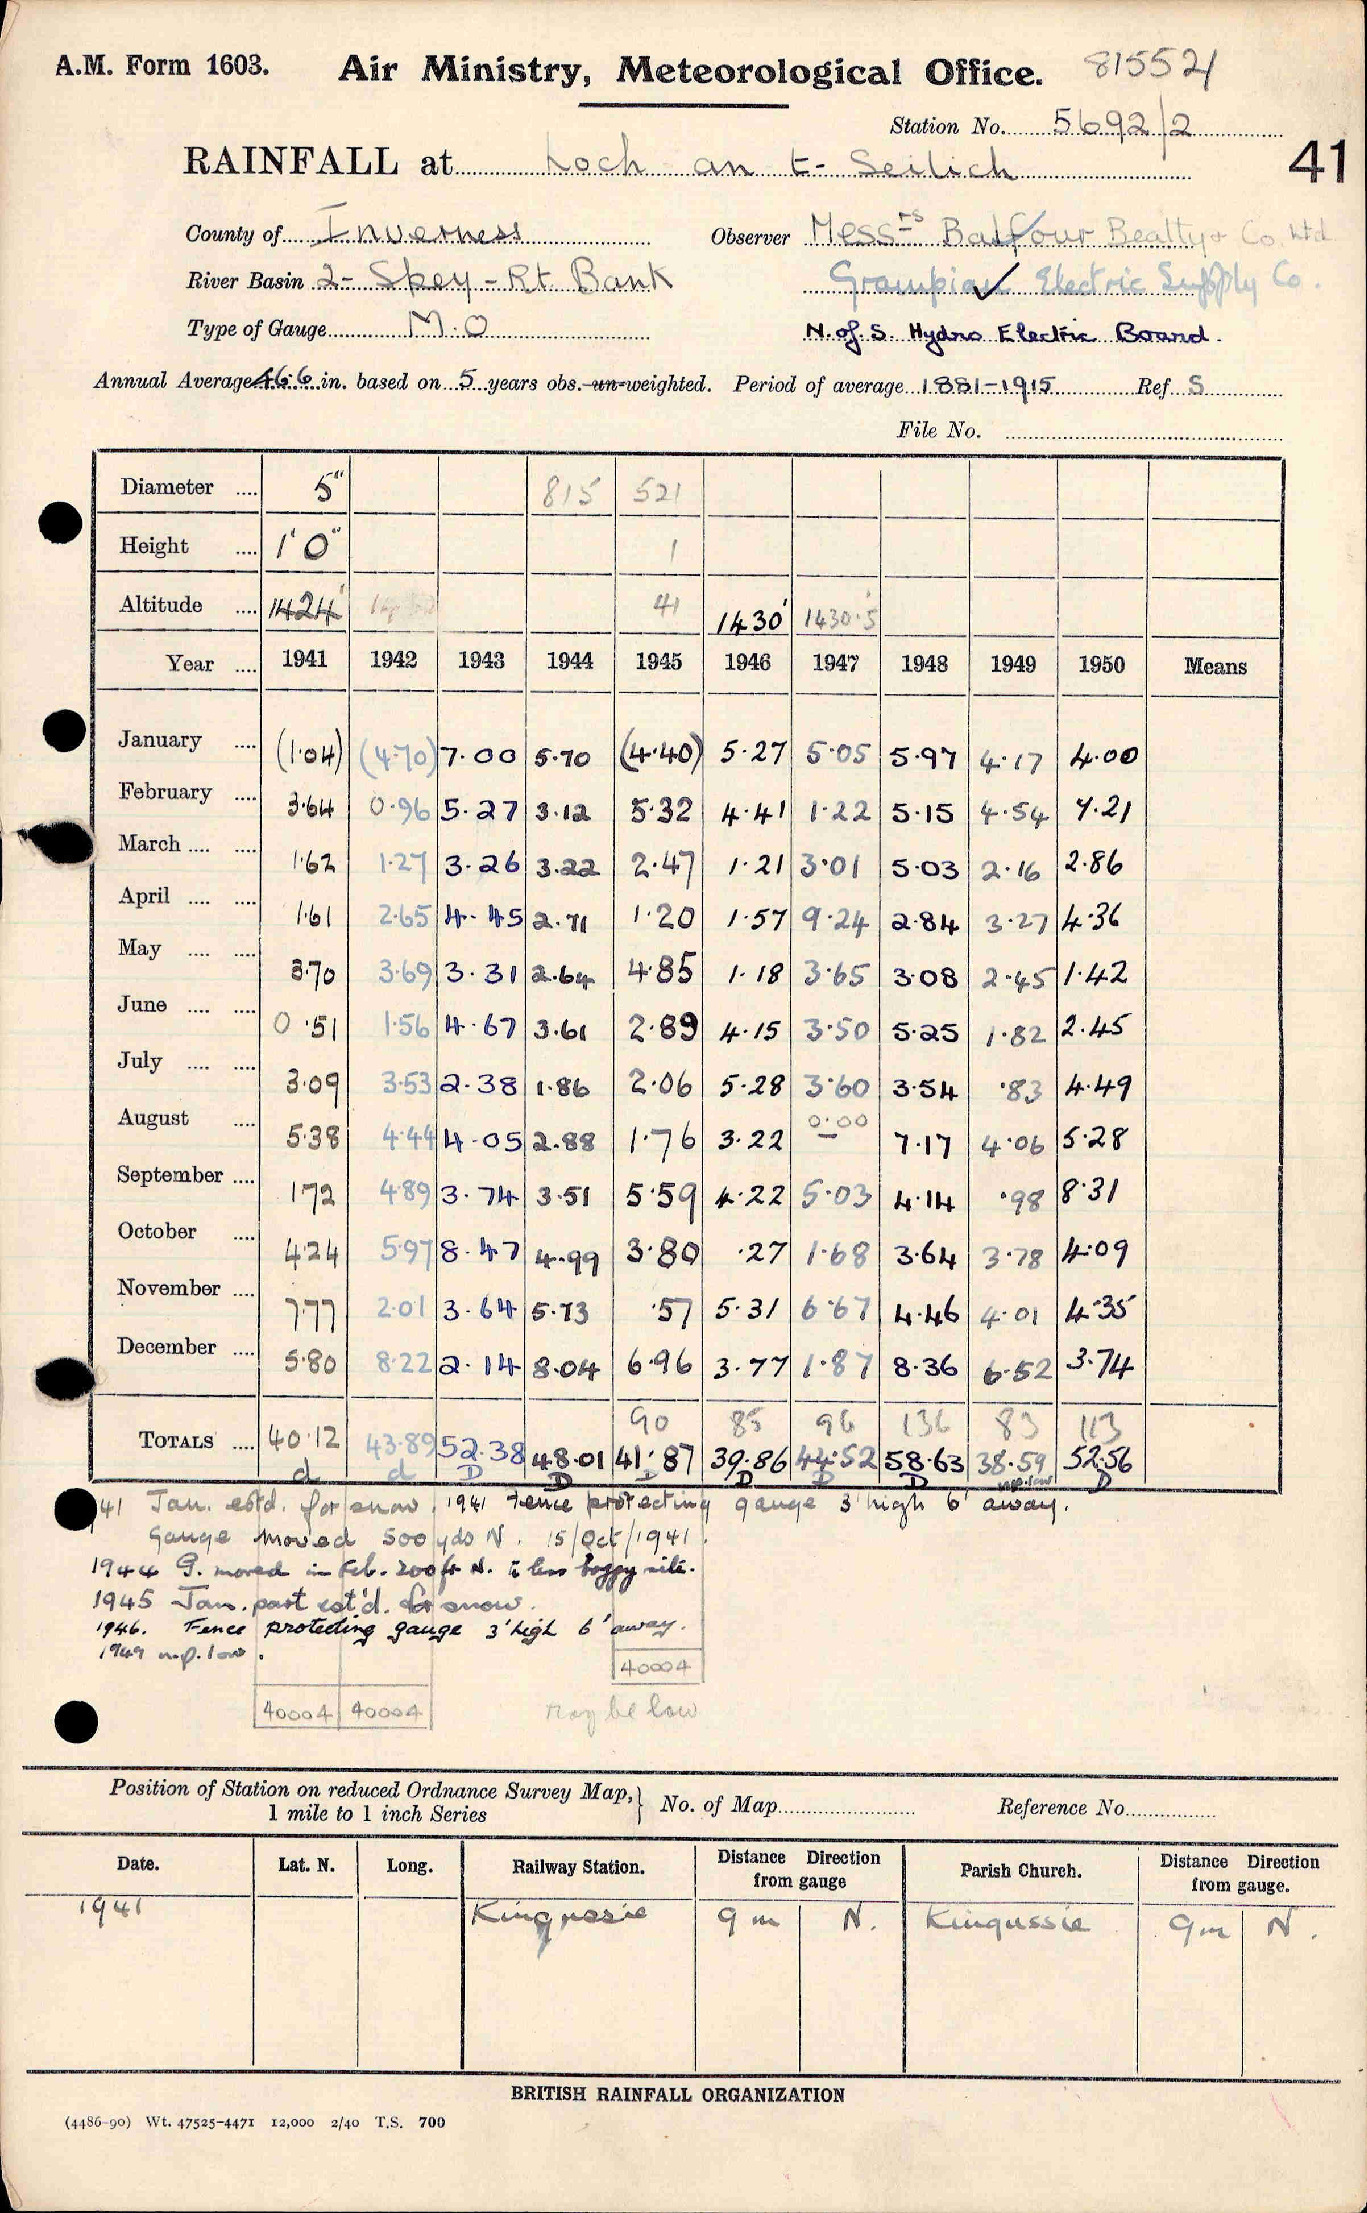 A.M. Form 1603. Air Ministry, Meteorological Office. 815521
Station No. 5692/2
RAINFALL at Loch an t- Seilich 41
County of Inverness Observer Messrs Balfour Beatty & Co. Ltd
River Basin 2- Spey - Rt. Bank Grampian Electric Supply Co.
Type of Gauge M.O N. of S. Hydro Electric Board.
Annual Average 46.6 in. based on 5 years obs. un-weighted. Period of average 1881-1915 Ref S
File No.
Diameter .... 5" 815 521
Height .... 1' 0" 1
Altitude .... 1424' 41 1430' 1430.5
Year .... 1941 1942 1943 1944 1945 1946 1947 1948 1949 1950 Means
January .... (1.04) (4.70) 7.00 5.70 (4.40) 5.27 5.05 5.97 4.17 4.00
February .... 3.64 0.96 5.27 3.12 5.32 4.41 1.22 5.15 4.54 7.21
March .... .... 1.62 1.27 3.26 3.22 2.47 1.21 3.01 5.03 2.16 2.86
April .... .... 1.61 2.65 4.45 2.71 1.20 1.57 9.24 2.84 3.27 4.36
May .... .... 3.70 3.69 3.31 2.64 4.85 1.18 3.65 3.08 2.45 1.42
June .... .... 0.51 1.56 4.67 3.61 2.89 4.15 3.50 5.25 1.82 2.45
July .... .... 3.09 3.53 2.38 1.86 2.06 5.28 3.60 3.54 .83 4.49
August .... 5.38 4.44 4.05 2.88 1.76 3.22 0.00 7.17 4.06 5.28
September .... 1.72 4.89 3.74 3.51 5.59 4.22 5.03 4.14 .98 8.31
October .... 4.24 5.97 8.47 4.99 3.80 .27 1.68 3.64 3.78 4.09
November .... 7.77 2.01 3.64 5.73 .57 5.31 6.67 4.46 4.01 4.35
December .... 5.80 8.22 2.14 8.04 6.96 3.77 1.87 8.36 6.52 3.74
90 85 96 136 83 113
TOTALS .... 40.12 43.89 52.38 48.01 41.87 39.86 44.52 58.63 38.59 52.56
d d D D D D D D m.p. low D
41 Jan. estd. for snow. 1941 Fence protecting gauge 3' high 6' away.
Gauge moved 500 yds N. 15/Oct/1941.
1944 G. moved in Feb. 200 ft N. to less boggy site.
1945 Jan. part est'd. for snow.
1946. Fence protecting gauge 3' high 6' away.
1949 m.p. low.
40004
40004 40004 May be low
Position of Station on reduced Ordnance Survey Map, } No. of Map Reference No.
1 mile to 1 inch Series
Date. Lat. N. Long. Railway Station. Distance Direction from gauge Parish Church. Distance Direction from gauge.
1941 Kingussie 9 m N. Kingussie 9m N.
BRITISH RAINFALL ORGANIZATION
(4486-90) Wt. 47525-4471 12,000 2/40 T.S. 700